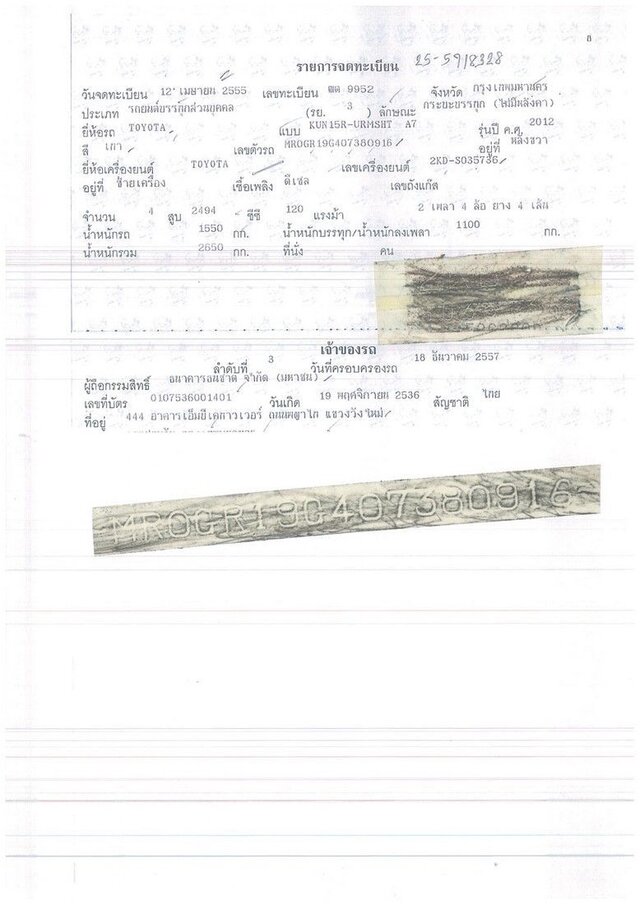 8
รายการจดทะเบียน 25-5918328
วันจดทะเบียน 12 เมษายน 2555 เลขทะเบียน 9952 จังหวัด กรุงเทพมหานคร
ประเภท รถยนต์บรรทุกส่วนบุคคล (รย. 3 ) ลักษณะ กระบะบรรทุก (ไม่มีหลังคา)
ยี่ห้อรถ TOYOTA แบบ KUN15R-URMSHT A7 รุ่นปี ค.ศ. 2012
สี เทา เลขตัวรถ MROGR19G407380916 อยู่ที่ หลังขวา
ยี่ห้อเครื่องยนต์ TOYOTA เลขเครื่องยนต์ 2KD-S035736
อยู่ที่ ซ้ายเครื่อง เชื้อเพลิง ดีเซล เลขถังแก๊ส
จำนวน 4 สูบ 2494 ซีซี 120 แรงม้า 2 เพลา 4 ล้อ ยาง 4 เส้น
น้ำหนักรถ 1550 กก. น้ำหนักบรรทุก/น้ำหนักลงเพลา 1100 กก.
น้ำหนักรวม 2650 กก. ที่นั่ง คน
เจ้าของรถ
ลำดับที่ 3 วันที่ครอบครองรถ 18 ธันวาคม 2557
ผู้ถือกรรมสิทธิ์ ธนาคารธนชาติ จำกัด (มหาชน)
เลขที่บัตร 0107536001401 วันเกิด 19 พฤศจิกายน 2536 สัญชาติ ไทย
ที่อยู่ 444 อาคารเอ็มบีเคทาวเวอร์ ถนนพญาไท แขวงวังใหม่
MROGR19G407380916